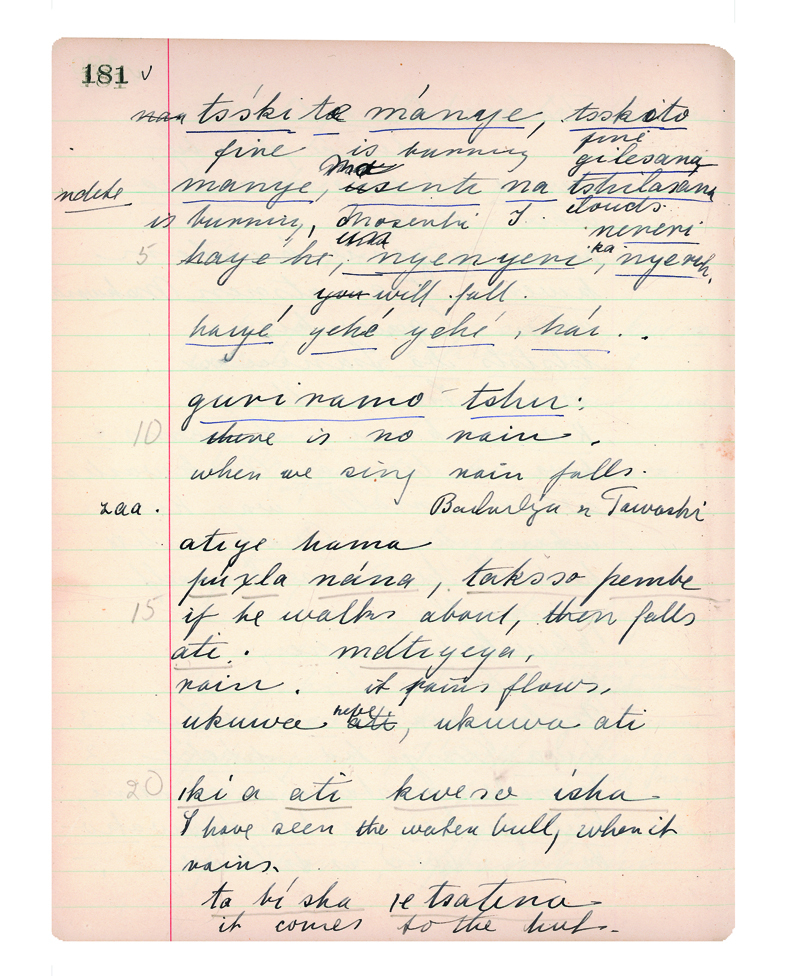 181 ✓
nan tsśki ta mánye, tsskoto
fire is burning fine
gilesana
manye, usenti na tshilasana
ndebe
is burning, Mosenki I clouds
una neneri
5 haye he, nyenyeri ka, nyereh.
you will fall.
haiyé yehé yehé, hái..
guvi namo tshu:
10 there is no rain.
when we sing rain falls.
zaa. Badudza n Tawoshi
atiye hama
púxla nána, taksso pembe
15 if he walks about, then falls
ati. mdtiyeya,
rain. it rains flows.
ukuwee ati, ukuwa ati
20 iki a ati kweso isha
I have seen the water bull, when it
rains.
ta bí sha ie tsatena
it comes to the hut.